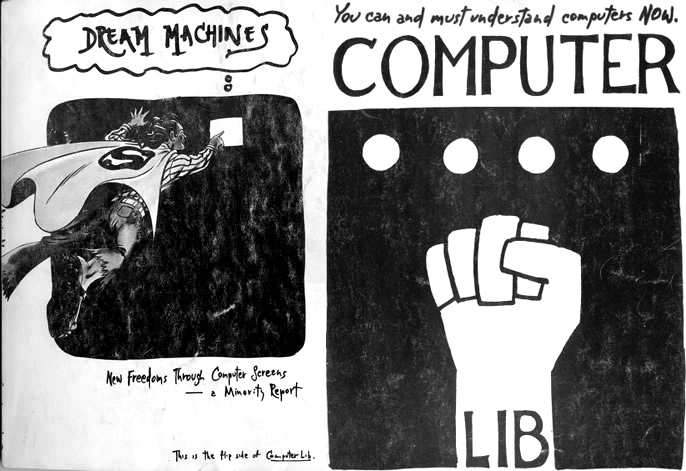 DREAM MACHINES
S
New Freedoms Through Computer Screens
— a Minority Report
This is the flip side of Computer Lib.
You can and must understand computers NOW.
COMPUTER
LIB